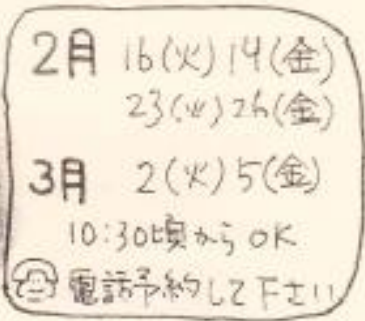 2月 16(火) 19(金)
23(火) 26(金)
3月 2(火) 5(金)
10:30頃から OK
電話予約して下さい